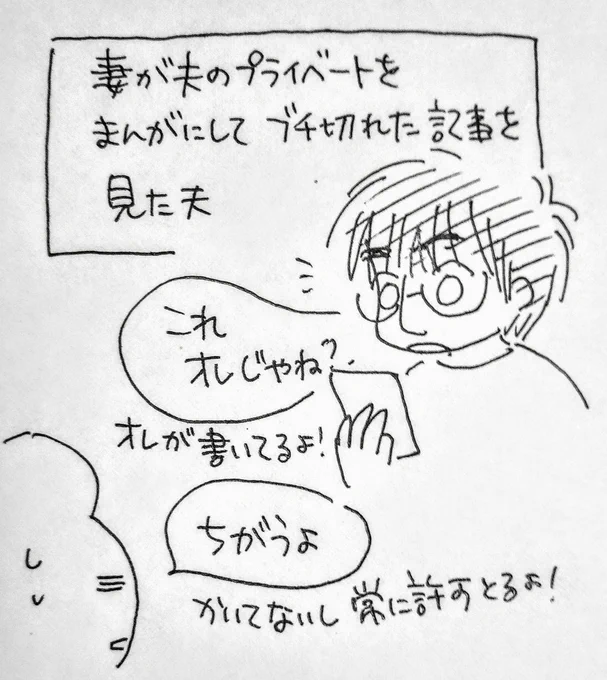 妻が夫のプライベートを
まんがにして ブチ切れた記事を
見た夫
これ
オレじゃね?
オレが書いてるよ!
ちがうよ
かいてないし 常に許すとるよ!